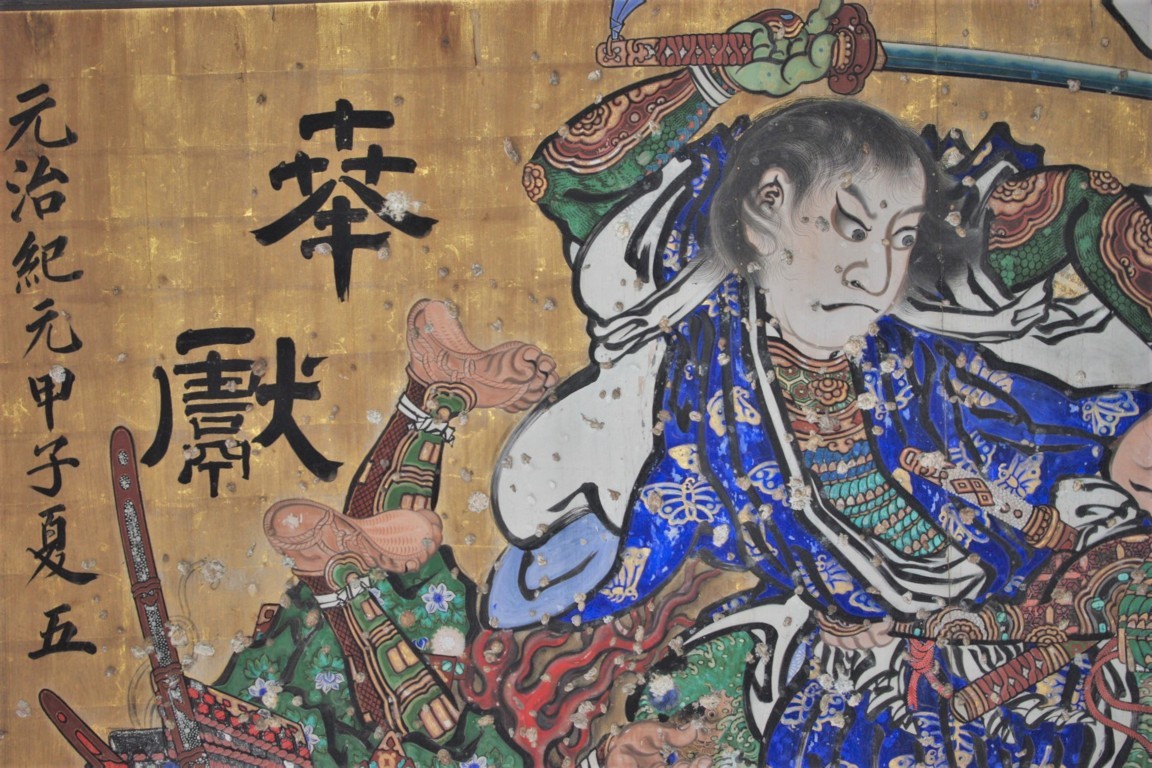 奉獻
元治紀元甲子夏五